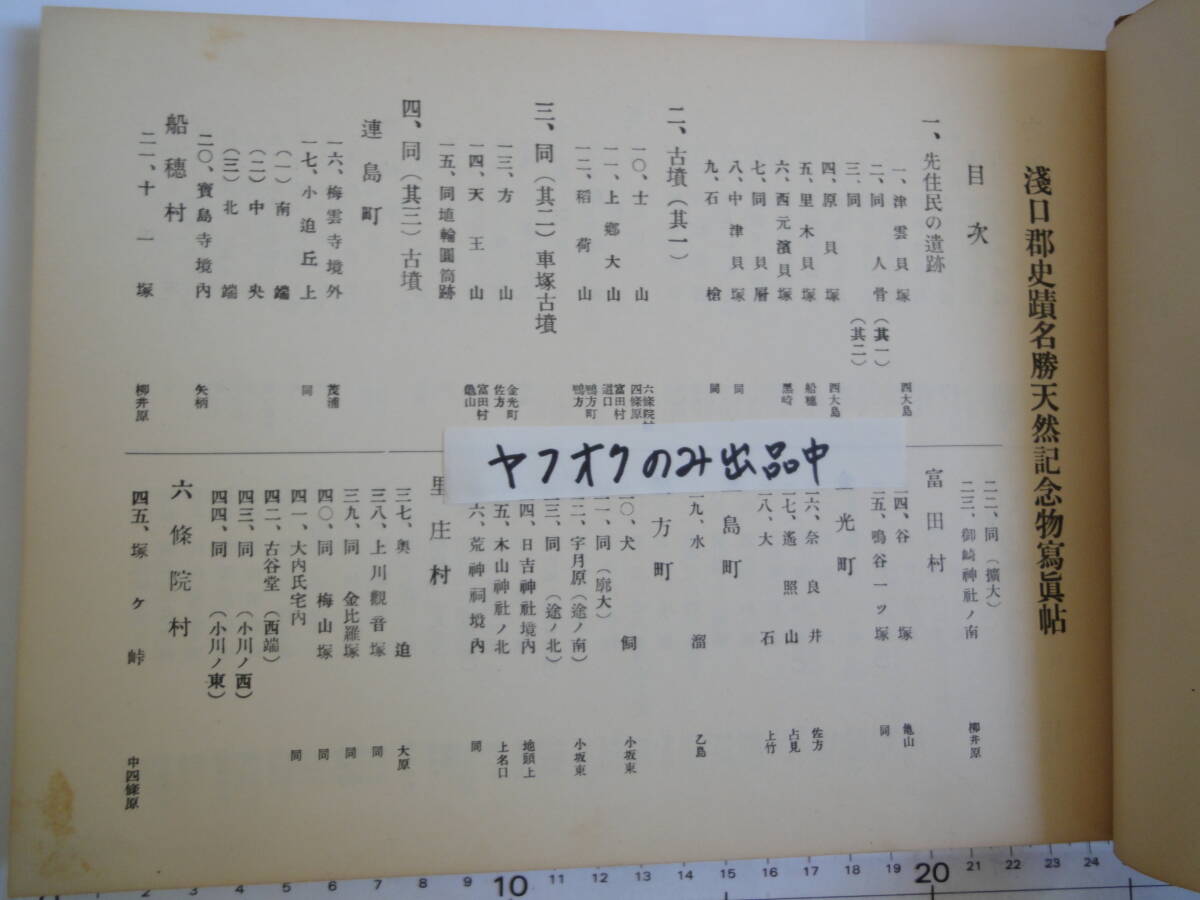 淺口郡史蹟名勝天然記念物寫眞帖
目次
一、先住民の遺跡
一、津雲貝塚 西大島
二、同人骨（其一）
三、同（其二）
四、原貝塚 西大島
五、里木貝塚 船穗
六、西元濱貝塚 黑崎
七、同貝層
八、中津貝塚 同
九、石槍 同
二、古墳（其一）
一〇、士山 六條院 四條原
一一、上鄕大山 富田村 道口
一二、稻荷山 鴨方町 鴨方
三、同（其二）車塚古墳
一三、方山 金光町 佐方
一四、天王山 富田村 龜山
一五、同埴輪圓筒跡
四、同（其三）古墳
連島町
一六、梅雲寺境外 茂浦
一七、小迫丘上 同
（一）南端
（二）中央
（三）北端
二〇、寶島寺境內 矢柄
船穗村
二一、十一塚 柳井原
二二、同（擴大）
二三、御崎神社ノ南 柳井原
富田村
二四、谷塚 龜山
二五、鳴谷一ツ塚 同
光町
六、奈良井 佐方
七、遙照山 占見
八、大石 上竹
島町
九、水溜 乙島
方町
〇、犬飼 小坂東
一、同（廓大）
二、宇月原（途ノ南） 小坂東
三、同（途ノ北）
四、日吉神社境內 地頭上
五、木山神社ノ北 上名口
六、荒神祠境內 同
里庄村
三七、奧迫 大原
三八、上川觀音塚 同
三九、同金比羅塚 同
四〇、同梅山塚 同
四一、大內氏宅內 同
四二、古谷堂（西端）
四三、同（小川ノ西）
四四、同（小川ノ東）
六條院村
四五、塚ケ峠 中四條原
ヤフオクのみ出品中
2 3 4 5 6 7 8 9 10 11 12 13 14 15 16 17 18 19 20 21 22 23 24